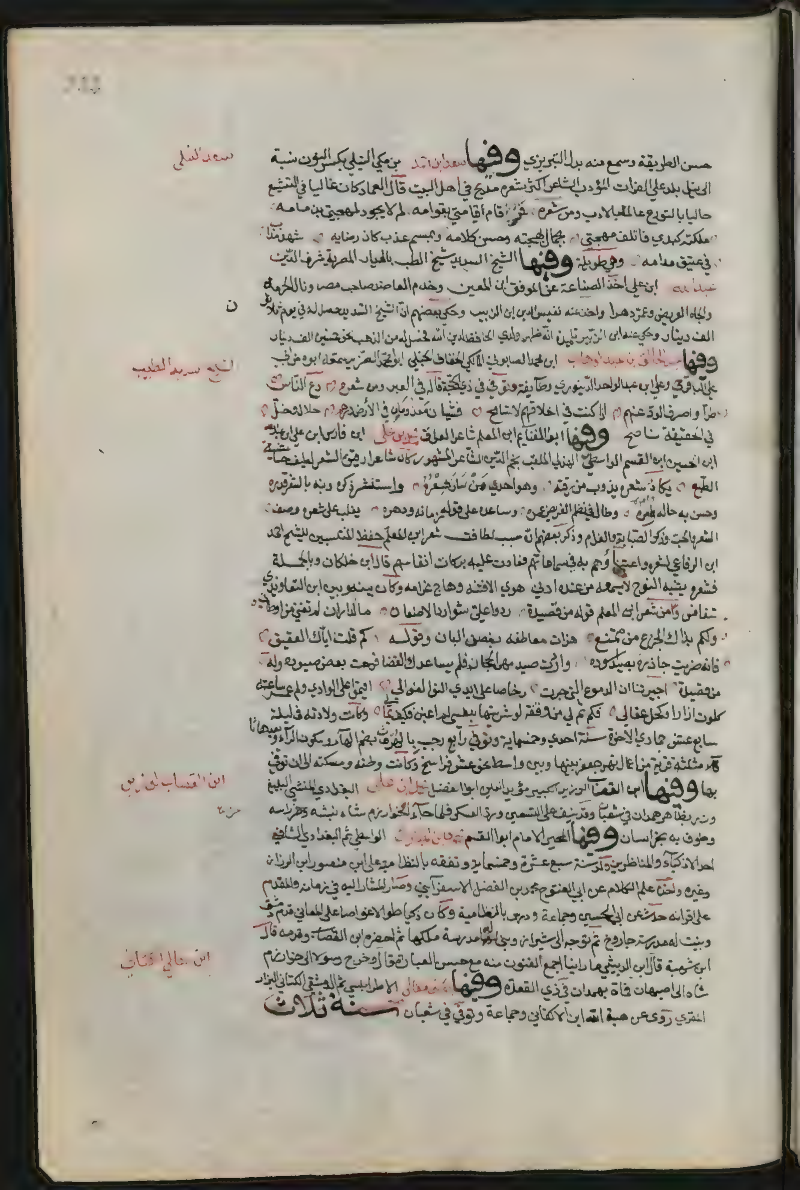 حسن الطريقة وسمع منه بدل التبريزي وفيها سعد بن احمد بن مكي النيلي بكسر النون نسبة
سعد النيلي
الى نيل بلد على الفرات المؤدب الشاعر اكثر شعره مديح في اهل البيت قال العماد كان غاليا في التشيع
حاليا بالتورع عالما بالادب ومن شعره قمر اقام قيامتي بقوامه لم لا يجود لمهجتي بذمامه
ملكته كبدي فاتلف مهجتي بجمال بهجته وحسن كلامه وبمبسم عذب كان رضابه شهد مذاب
في عتيق مدامه وهي طويلة وفيها الشيخ السديد شيخ الطب بالديار المصرية شرف الدين
عبد الله ابن علي اخذ الصناعة عن الموفق ابن المعين وخدم العاضد صاحب مصر ونال الحرمة
والجاه العريض وعمر دهرا واخذ عنه نفيس الدين ابن الزبير وحكى بعضهم ان الشيخ السديد حصل له في يوم ثلاثين
الف دينار وحكى عنه ابن الزبير تلميذه انه طهر ولدي الحافظ لدين الله فحصل له من الذهب نحو خمسين الف دينار
الشيخ سديد الطبيب
وفيها عبد الخالق بن عبد الوهاب ابن محمد الصابوني المالكي الخفاف الحنبلي ابو محمد الضرير سمعه ابوه من ابي
علي الباقرحي وعلي ابن عبد الواحد الدينوري وطائفة وتوفي في ذي الحجة قاله في العبر ومن شعره دع الناس
طرا واصرف الود عنهم اذا كنت في اخلاقهم لا تسامح فشيان معدومان في الأرض درهم حلال وخل
في الحقيقة ناصح وفيها ابو الغنائم ابن المعلم شاعر العراق محمد بن علي ابن فارس ابن علي ابن عبد الله
ابن الحسين ابن القسم الواسطي الهرثي الملقب نجم الدين الشاعر المشهور وكان شاعرا رقيق الشعر لطيف حاشية
الطبع يكاد شعره يذوب من رقته وهو احد من سار شعره وانتشر ذكره ونبه بالشعر قدره
وحسن به حاله وامره وطال في نظم القريض عمره وساعده على قوله زمانه ودهره يغلب على شعره وصف
الشعر بالحب وذكر الصبابة والغرام وذكر بعضهم ان سبب لطافة شعر ابن المعلم حفظ المنتسبين للشيخ احمد
ابن الرفاعي لشعره واعتنائهم به في سماعاتهم فعادت عليه بركات انفاسهم قال ابن خلكان وبالجملة
فشعره يشبه النوح لا يسمعه من عنده ادنى هوى الا فتنه وهاج غرامه وكان بينه وبين ابن التعاويذي
تنافس ومن شعر ابن المعلم قوله من قصيدة ردوا علي شوارد الاظعان ما الدار ان لم تغن من اوطاني
ولكم بذاك الجزع من متمنع هزات معاطفه بغصن البان وقوله كم قلت اياك العقيق
فانه ضربت جآذره بصيد اسوده واردت صيد مها الحجاز فلم يساعدك القضا فرحت بعض صيوده وله
من قصيدة اجيراننا ان الدموع التي جرت رخاصا على ايدي النوى لغوالي اقيموا على الوادي ولو عمر ساعة
كلوث ازار او كحل عقال فكم ثم لي من وقفة لو شريتها بنفسي لم اغبن فكيف بمالي وكانت ولادته في ليلة
سابع عشر جمادى الاخرة سنة احدى وخمسماية وتوفي رابع رجب بالهرث بضم الهاء وسكون الراء وبعدها ثا
مثلثة قرية من اعمال نهر جعفر بينها وبين واسط نحو عشر فراسخ وكانت وطنه ومسكنه الى ان توفي
ابن القصاب الوزير
بها وفيها ابن القصاب الوزير الكبير مؤيد الدين ابو الفضل محمد ابن علي البغدادي المنشئ البليغ
وزر وسار بالعسكر ففتح همدان في شعبان وقد نيف على السبعين ورد العسكر فلما جاء خوارزم شاه نبشه وحز راسه
وطوف به بخراسان وفيها المجير الامام ابو القسم محمود بن المبارك الواسطي ثم البغدادي الشافعي
احد الاذكياء والمناظرين ولد سنة سبع عشرة وخمسماية وتفقه بالنظامية على ابن منصور ابن الرزاز
وغيره واخذ علم الكلام عن ابي الفتوح محمد بن الفضل الاسفرايني وصار المشار اليه في زمانه والمقدم
على اقرانه حدث عن ابي الحصين وجماعة ودرس بالنظامية وكان ذكيا طوالا غواصا على المعاني قدم دمشق
وبنيت له مدرسة جاروخ ثم توجه الى شيراز وبنى له مدرسة ملكها ثم احضره ابن القصاب وقدمه قال
ابن معالي الكتاني
ابن شهبة قال ابن الدبيثي ما راينا اجمع لفنون منه مع حسن العبارة قال وخرج رسولا الى خوارزم
شاه الى اصبهان فمات بهمدان في ذي القعدة وفيها معالي الاطرابلسي ثم الدمشقي الكتاني البزاز
المقري روى عن هبة الله ابن الاكفاني وجماعة وتوفي في شعبان سنة ثلاث